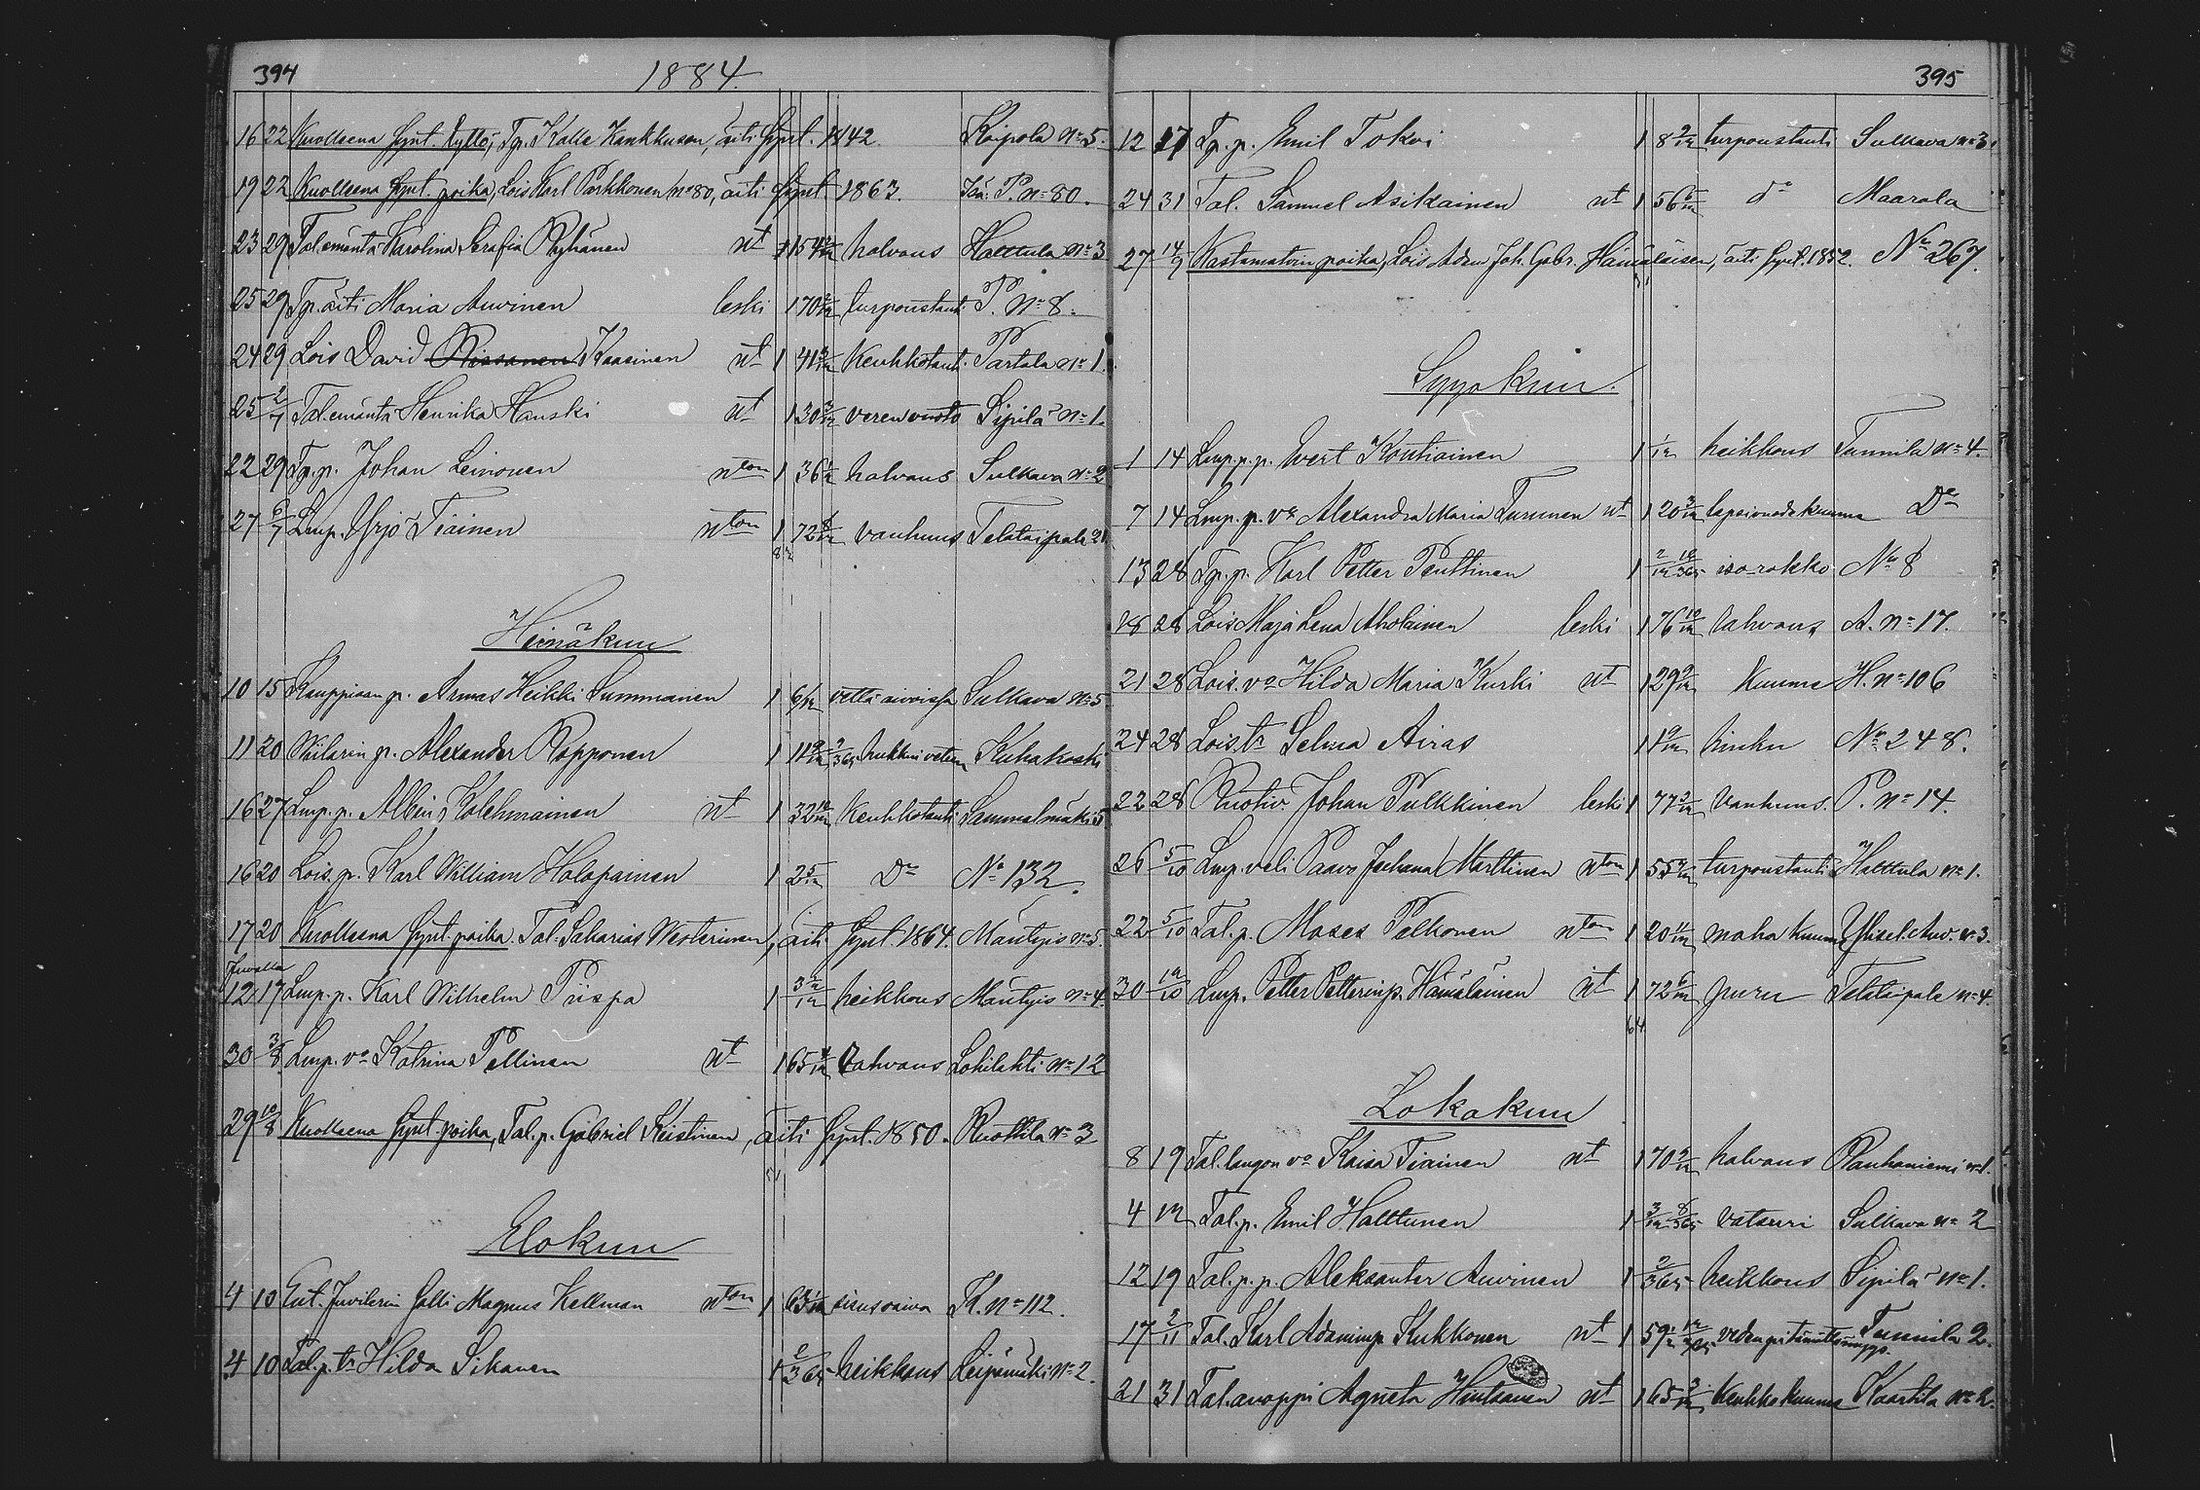 394
1884.
16 22 Kuolleena synt. tyttö, Tp. Kalle Kankkusen, äiti synt. 1842. Kaipola No 5.
19 22 Kuolleena synt. poika, Lois Karl Parkkonen No 80, äiti synt. 1863. P. No 80.
23 29 Tal. emäntä Karolina Serafia Räyhänen nt 1 54 halvaus Halttula No 3
25 29 Tp. äiti Maria Auvinen leski 1 70 turpoustauti P. No 8.
24 29 Lois David Nissonen Kaasinen nt 1 41 Keuhkotaut. Partala No 1.
25 2/7 Tal. emäntä Henrika Hanski nt 1 30 verenvuoto Sipilä No 1.
22 29 Tp. p. Johan Leinonen nton 1 36 halvaus Sulkava No 2
27 6/7 Lmp. Yrjö Tiainen nton 1 72 vanhuus Telataipale 21
Heinäkuu
10 15 Kauppiaan p. Armas Heikki Summanen 1 6/12 vettä aivoissa Sulkava No 5
11 20 Viilarin p. Alexander Ropponen 1 11 hukkui veteen Kuhakoski
16 27 Lmp. p. Albin Kolehmainen nt 1 32 Keuhkotauti Sammalmäki 5
16 20 Lois. p. Karl William Holopainen 1 2 Do No 132.
17 20 Kuolleena synt. poika. Tal. Sakarias Westerinen, äiti synt. 1864. Mäntyis No 5.
Juvalla
12 17 Lmp. p. Karl Wilhelm Piispa 1 heikkous Mäntyis No 4.
30 3/8 Lmp. vo Katrina Pellinen nt 1 65 halvaus Lohilahti No 12
29 10/8 Kuolleena synt. poika, Tal. p. Gabriel Keistinen, äiti synt. 1850. Ruottila No 3
Elokuu
4 10 Ent. Juvilerin Salli Magnus Kellman nton 1 63 K. No 112.
4 10 Tal. p. tr Hilda Sikanen 1 2/365 heikkous Leipämäki No 2.
395
12 17 Tp. p. Emil Tokvi 1 8 turpoustauti Sulkava No 3.
24 31 Tal. Samuel Asikainen nt 1 56 do Maarala
27 14/9 Kastamatoin poika, Lois Adam Joh. Gabr. Hämäläisen, äiti synt. 1852. No 267.
Syyskuu.
1 14 Lmp. p. p. Evert Kontiainen 1 1/12 heikkous Tunnila No 4.
7 14 Lmp. p. vo Alexandra Maria Turunen nt 1 20 lapsivuodekuume Do
13 28 Tp. p. Karl Petter Penttinen 1 isorokko No 8
18 28 Lois Maja Lena Aholainen leski 1 76 halvaus A. No 17.
21 28 Lois. vo Hilda Maria Kurki nt 1 29 Kuume H. No 106
24 28 Lois. tr Selma Airas 1 hinku No 248.
22 28 Ruotiv. Johan Pulkkinen leski 1 77 Vanhuus. P. No 14.
26 5/10 Lmp. veli Paavo Juhana Marttinen nton 1 55 turpoustauti Halttula No 1.
22 5/10 Tal. p. Moses Pelkonen nton 1 20 maha kuume
30 12/10 Lmp. Petter Petterinp. Hämäläinen nt 1 72 Telataipale No 4.
64
Lokakuu
8 19 Tal. langon vo Kaisa Tiainen nt 1 70 halvaus Rauhaniemi No 1.
4 12 Tal. p. Emil Halttunen 1 vatsuri Sulkava No 2
12 19 Tal. p. p. Aleksanter Auvinen 1 2/365 heikkous Sipilä No 1.
17 2/11 Tal. Karl Adaminp. Kukkonen nt 1 59 Tunnila 2.
21 31 Tal. anoppi Agneta Hintsanen nt 1 65 Keuhkokuume Kaartila No 2.